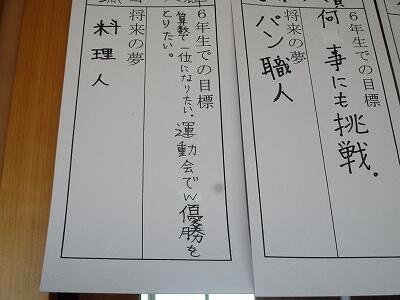 6年生での目標
何事にも挑戦。
将来の夢
パン職人
6年生での目標
算数で一位になりたい。運動会でW優勝を
とりたい。
将来の夢
料理人